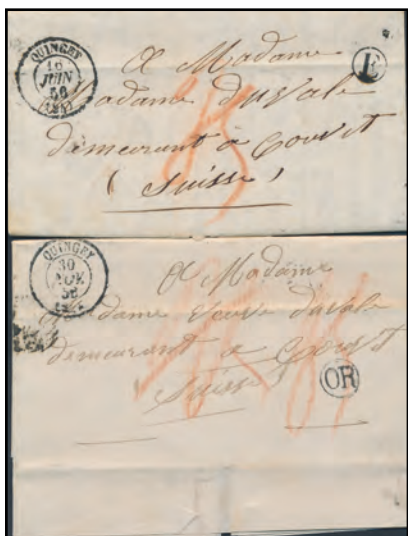 QUINGEY
16
JUIN
56
(24)
E
A Madame
Madame duvale
demeurant à Couvet
( Suisse )
QUINGEY
30
NOV.
56
A Madame
Madame veuve duvale
demeurant a Couvet
( Suisse )
OR